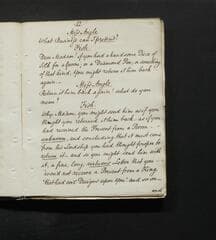 22
Miss Angle
What Business can I pretend?
Fish.
Dear Madam! if you had a handsome Piece of
Silk for a Gown; or a Diamond Pin, or something
of that kind: You might return it him back
again
Miss Angle
Return it him back again! what do you
mean?
Fish
Why Madam, you might send him as if you
thought you returned it him back: as if you
had received the Present from a Person
unknown, and concluding that it must come
from his Lordship you had thought proper to
return it: and so you might send him with
it, a fine, long, virtuous Letter that you
would not receive a Present from a King
that had isn't Designs upon You: and so on:
and